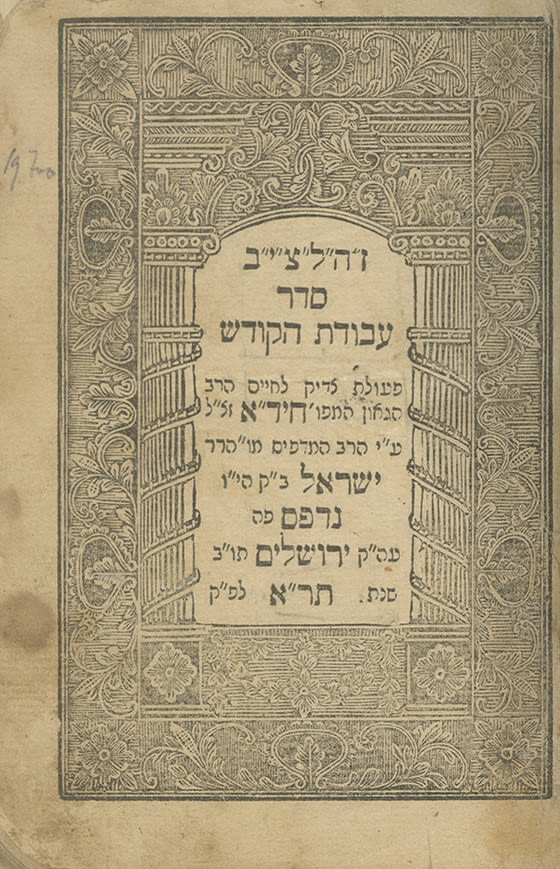 ז"ה"ל"צ"י"ב
סדר
עבודת הקודש
פעולת צדיק לחיים הרב
הגאון המפו' חיד"א זצ"ל
ע"י הרב המדפיס מו"הרר
ישראל ב"ק הי"ו
נדפס פה
עה"ק ירושלים תו"ב
שנת. תר"א לפ"ק